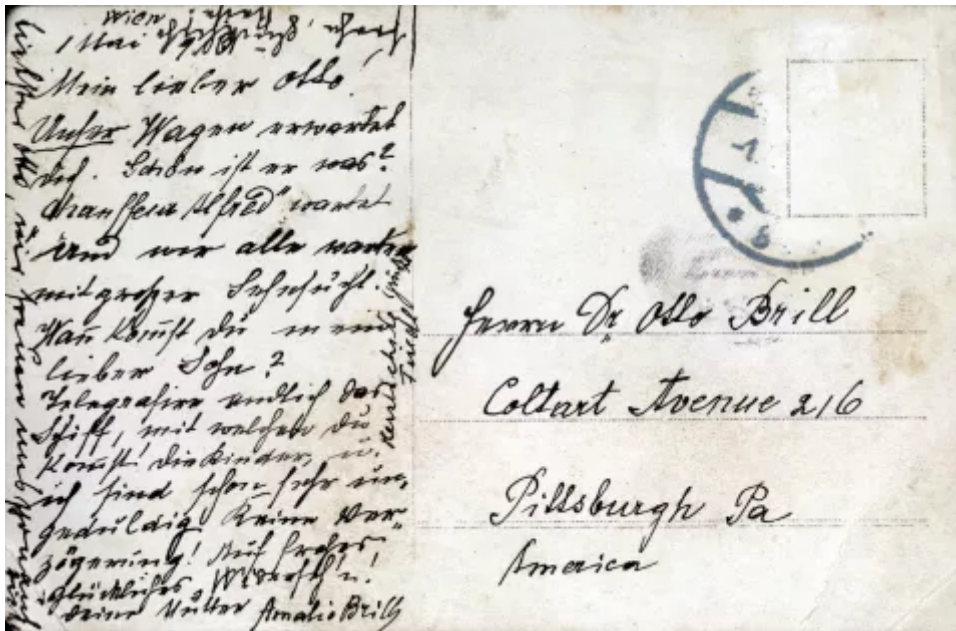 Wien
1 Mai
Mein lieber Otto,
Unser Wagen erwartet
dich. Schön ist er was?
Chauffeur Alfred" wartet
und wir alle warten
mit großer Sehnsucht.
Wan̄ kom̄st du mein
lieber Sohn?
Telegrafire endlich das
Schiff, mit welchem du
kom̄st! Die Kinder, u.
ich sind schon sehr un-
geduldig. Keine Ver-
zögerung! Auf frohes,
glückliches Wiederseh'n!
deine Mutter Amalie Brill
liebster Otto, wir freuen uns
herzlichst
Herrn Dr Otto Brill
Coltart Avenue 216
Pittsburgh Pa
America
1